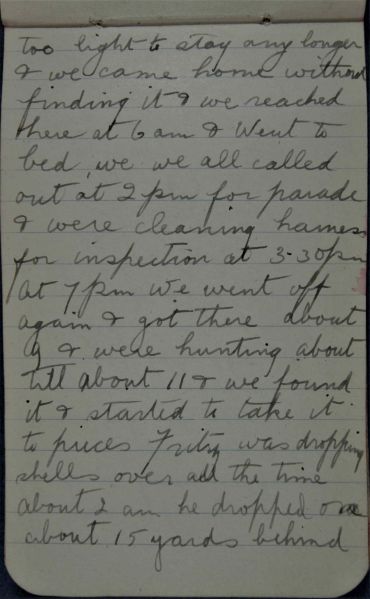 too light to stay any longer
& we came home without
finding it & we reached
here at 6 am & Went to
bed, we we all called
out at 2 pm for parade
& were cleaning harness
for inspection at 3-30 pm
At 7 pm We went off
again & got there about
9 & were hunting about
till about 11 & we found
it & started to take it
to pieces Fritz was dropping
shells over all the time
about 2 am he dropped one
about 15 yards behind